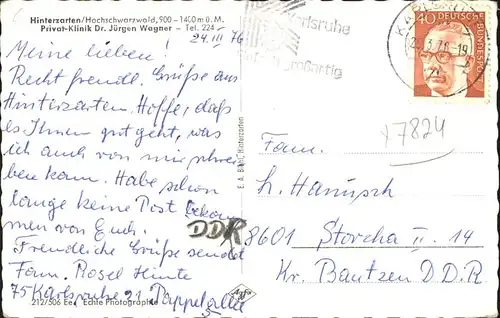 Hinterzarten/Hochschwarzwald, 900 - 1400 m ü. M.
Privat-Klinik Dr. Jürgen Wagner - Tel. 224
24. III 76
Meine lieben!
Recht freundl. Grüße aus
Hinterzarten. Hoffe, daß
es Ihnen gut geht, was
ich auch von mir schrei-
ben kann. Habe schon
lange keine Post bekom
men von Euch.
Freundliche Grüße sendet
Fam. Rosel Hinte
75 Karlsruhe 21 Pappelallee
5
212/506 Echte Photographie
E. A. Biehl, Hinterzarten
Karlsruhe
großartig
KARLSRUHE
-19
40 DEUTSCHE BUNDESPOST
x7824
Fam.
h. Hanusch
DDR
8601 Storcha II. 14
Kr. Bautzen D.D.R
Agfa